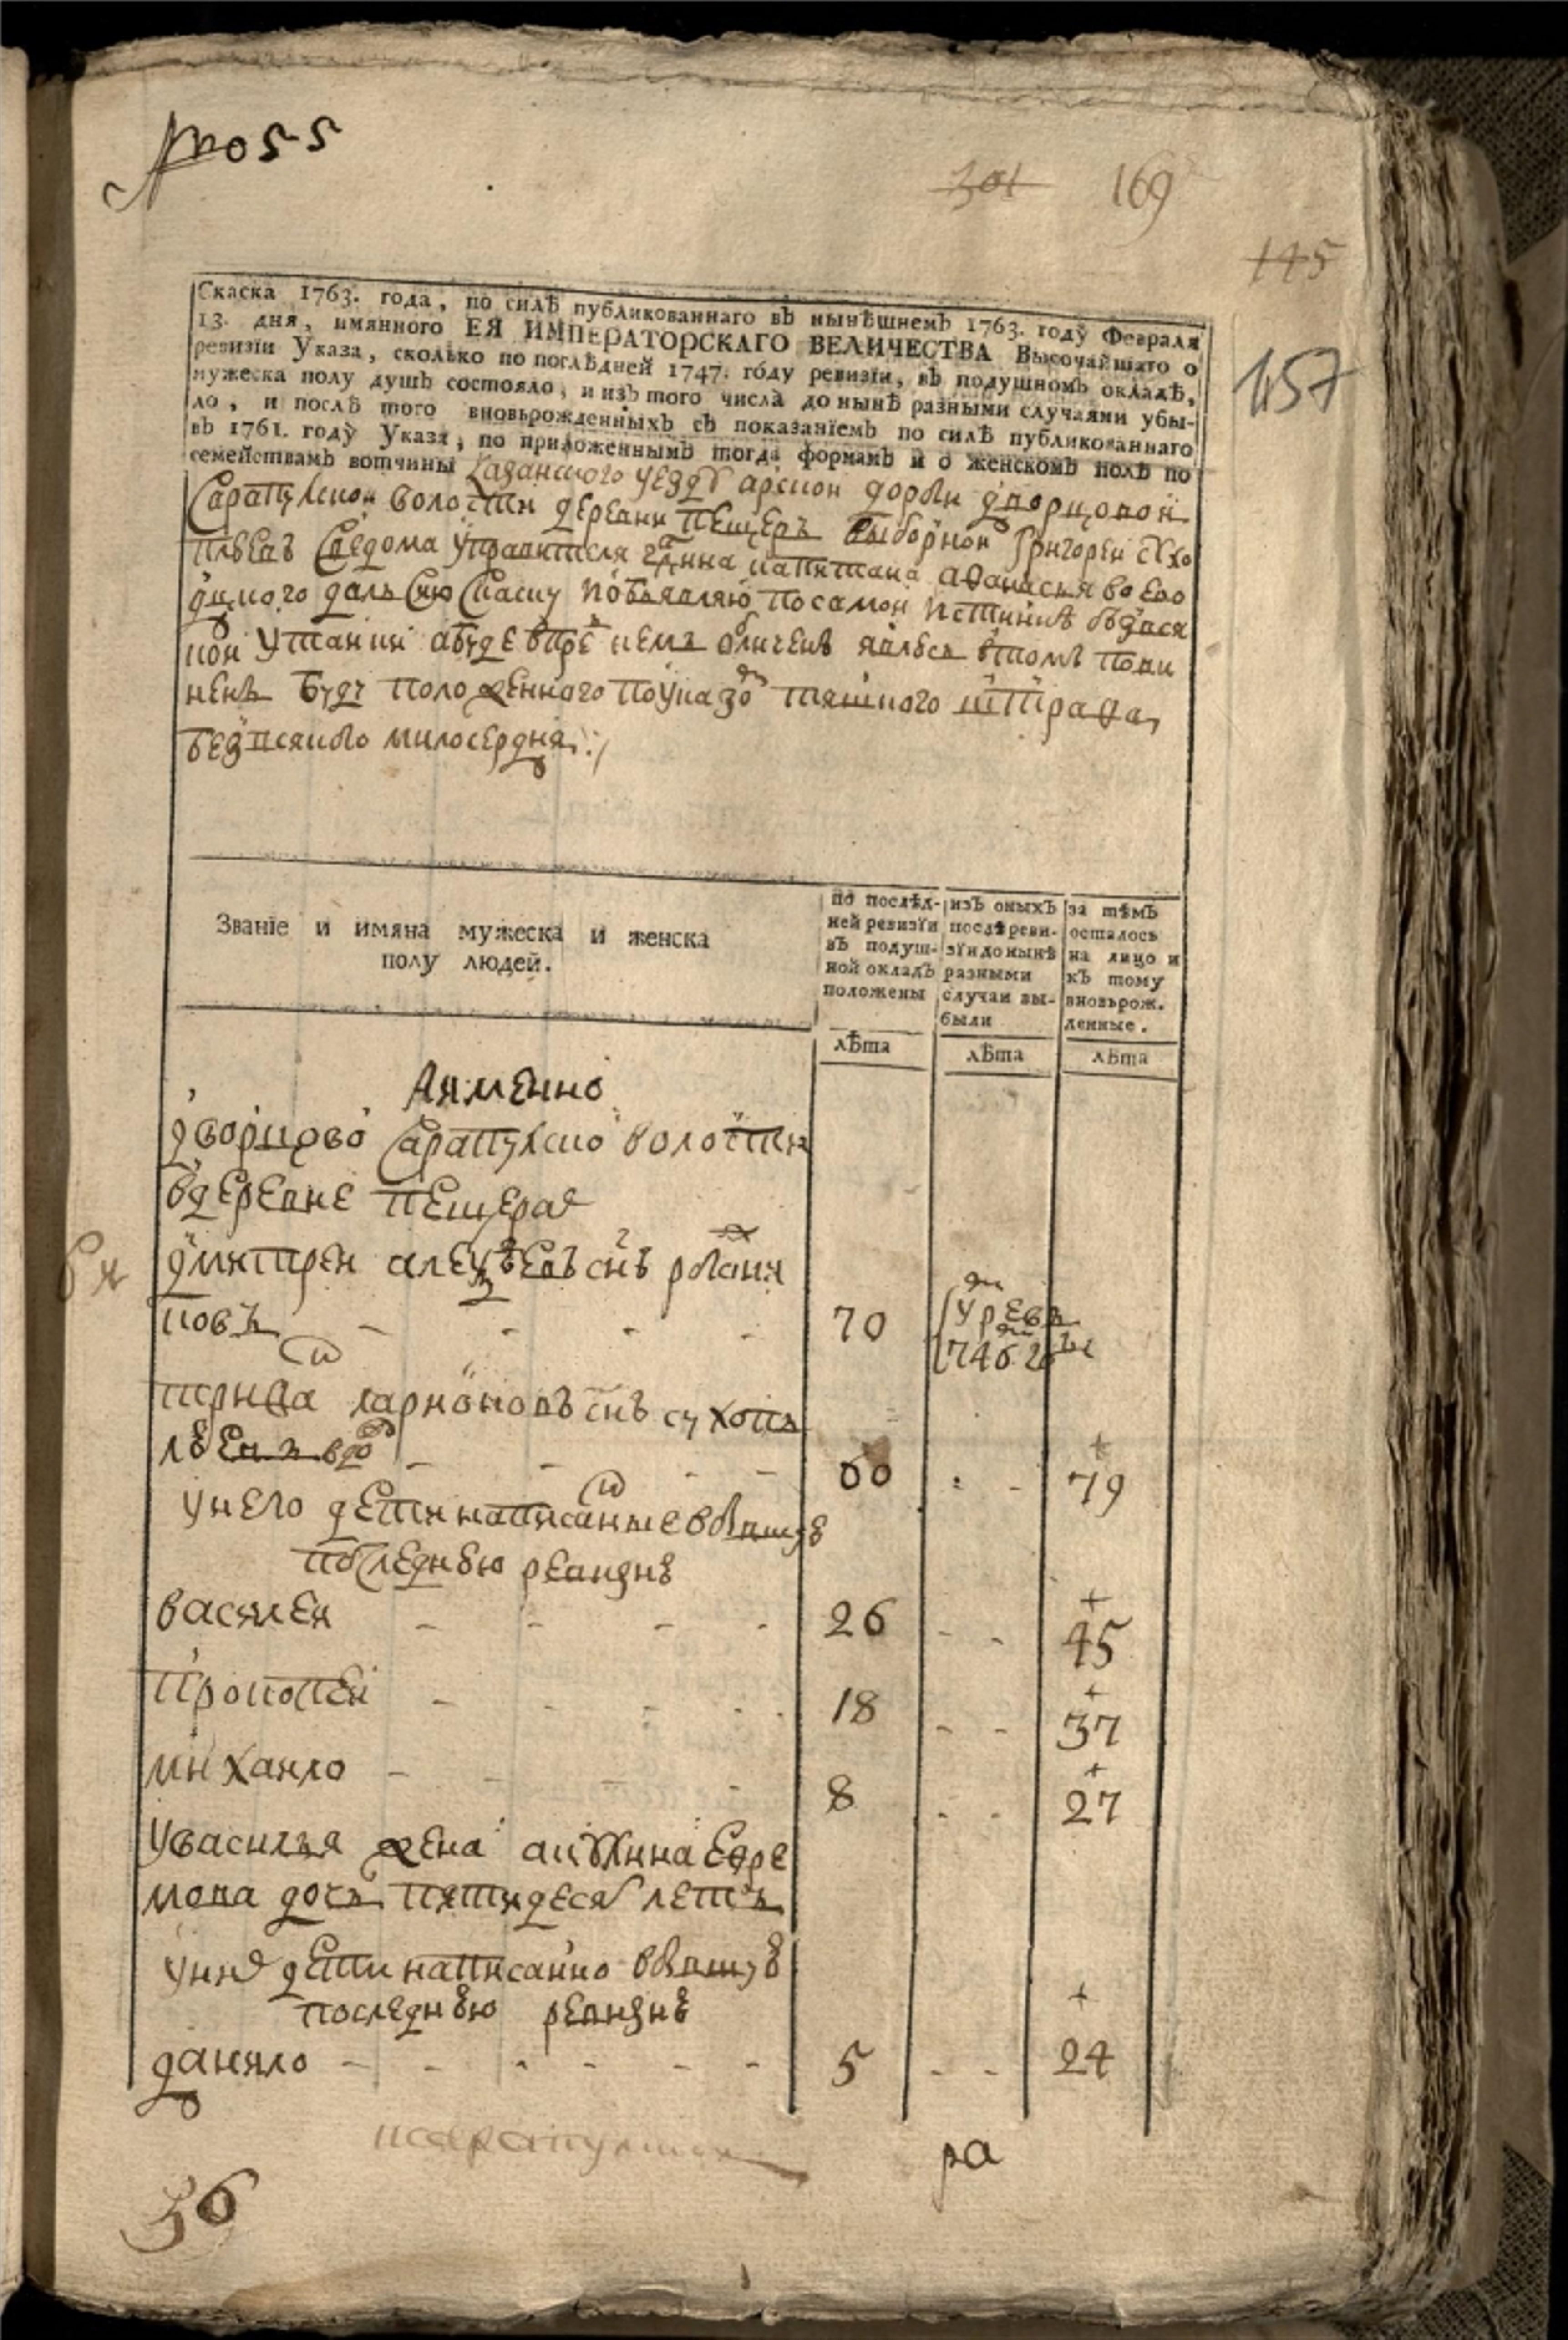 № 055
301 169
145
157
Скаска 1763. года, по силѣ публикованнаго въ нынѣшнемъ 1763. году Февраля
13. дня, имяннаго ЕЯ ИМПЕРАТОРСКАГО ВЕЛИЧЕСТВА Высочайшаго о
ревизїи Указа, сколько по послѣдней 1747. году ревизїи, въ подушномъ окладѣ,
мужеска полу душъ состояло, и изъ того числа до нынѣ разными случаями убы-
ло, и послѣ того вновьрожденныхъ съ показанїемъ по силѣ публикованнаго
въ 1761. году Указа, по приложеннымъ тогда формамъ и о женскомъ полѣ по
семействамъ вотчины Казанского уезду арской дороги дворцовой
Сарапулской волости деревни пещеръ выборной григорей сухо
плѣевъ сведома управителя капитана афанасья
дал сию скаску пообъявляю посамой истинне
нои утаики абуде впре кемъ обличенъ явлюсь втомъ пови
ненъ буду положенного поуказо тяшкого штрафа
безвсякого милосердия
Званїе и имяна мужеска и женска
полу людей.
по послѣд-
ней ревизїи
въ подуш-
ной окладъ
положены
изъ оныхъ
послѣ реви-
зїи до нынѣ
разными
случаи вы-
были
за тѣмъ
осталось
на лицо и
къ тому
вновьрож.
денные.
лѣта лѣта лѣта
Аимянно
дворцово Сарапулско волости
вдеревне пещера
дмитреи алеѯѣевъ снъ
ковъ - - - - 70
трифа ларионовъ снъ сухопъ
лѣевъ вдо - - - - 60 - - 79
унего дети написанные вбывшуѣ
последнѣю ревизиѣ
василеи - - - - 26 - - 45
прокопеи - - - - 18 - - 37
михаило - - - - 8 - - 27
увасилья жена акулина ефре
мова дочь пятидеся летъ
уни дети написанно вбывшуѣ
последнѣю ревизиѣ
данило - - - - - - 5 - - 24
ра
36